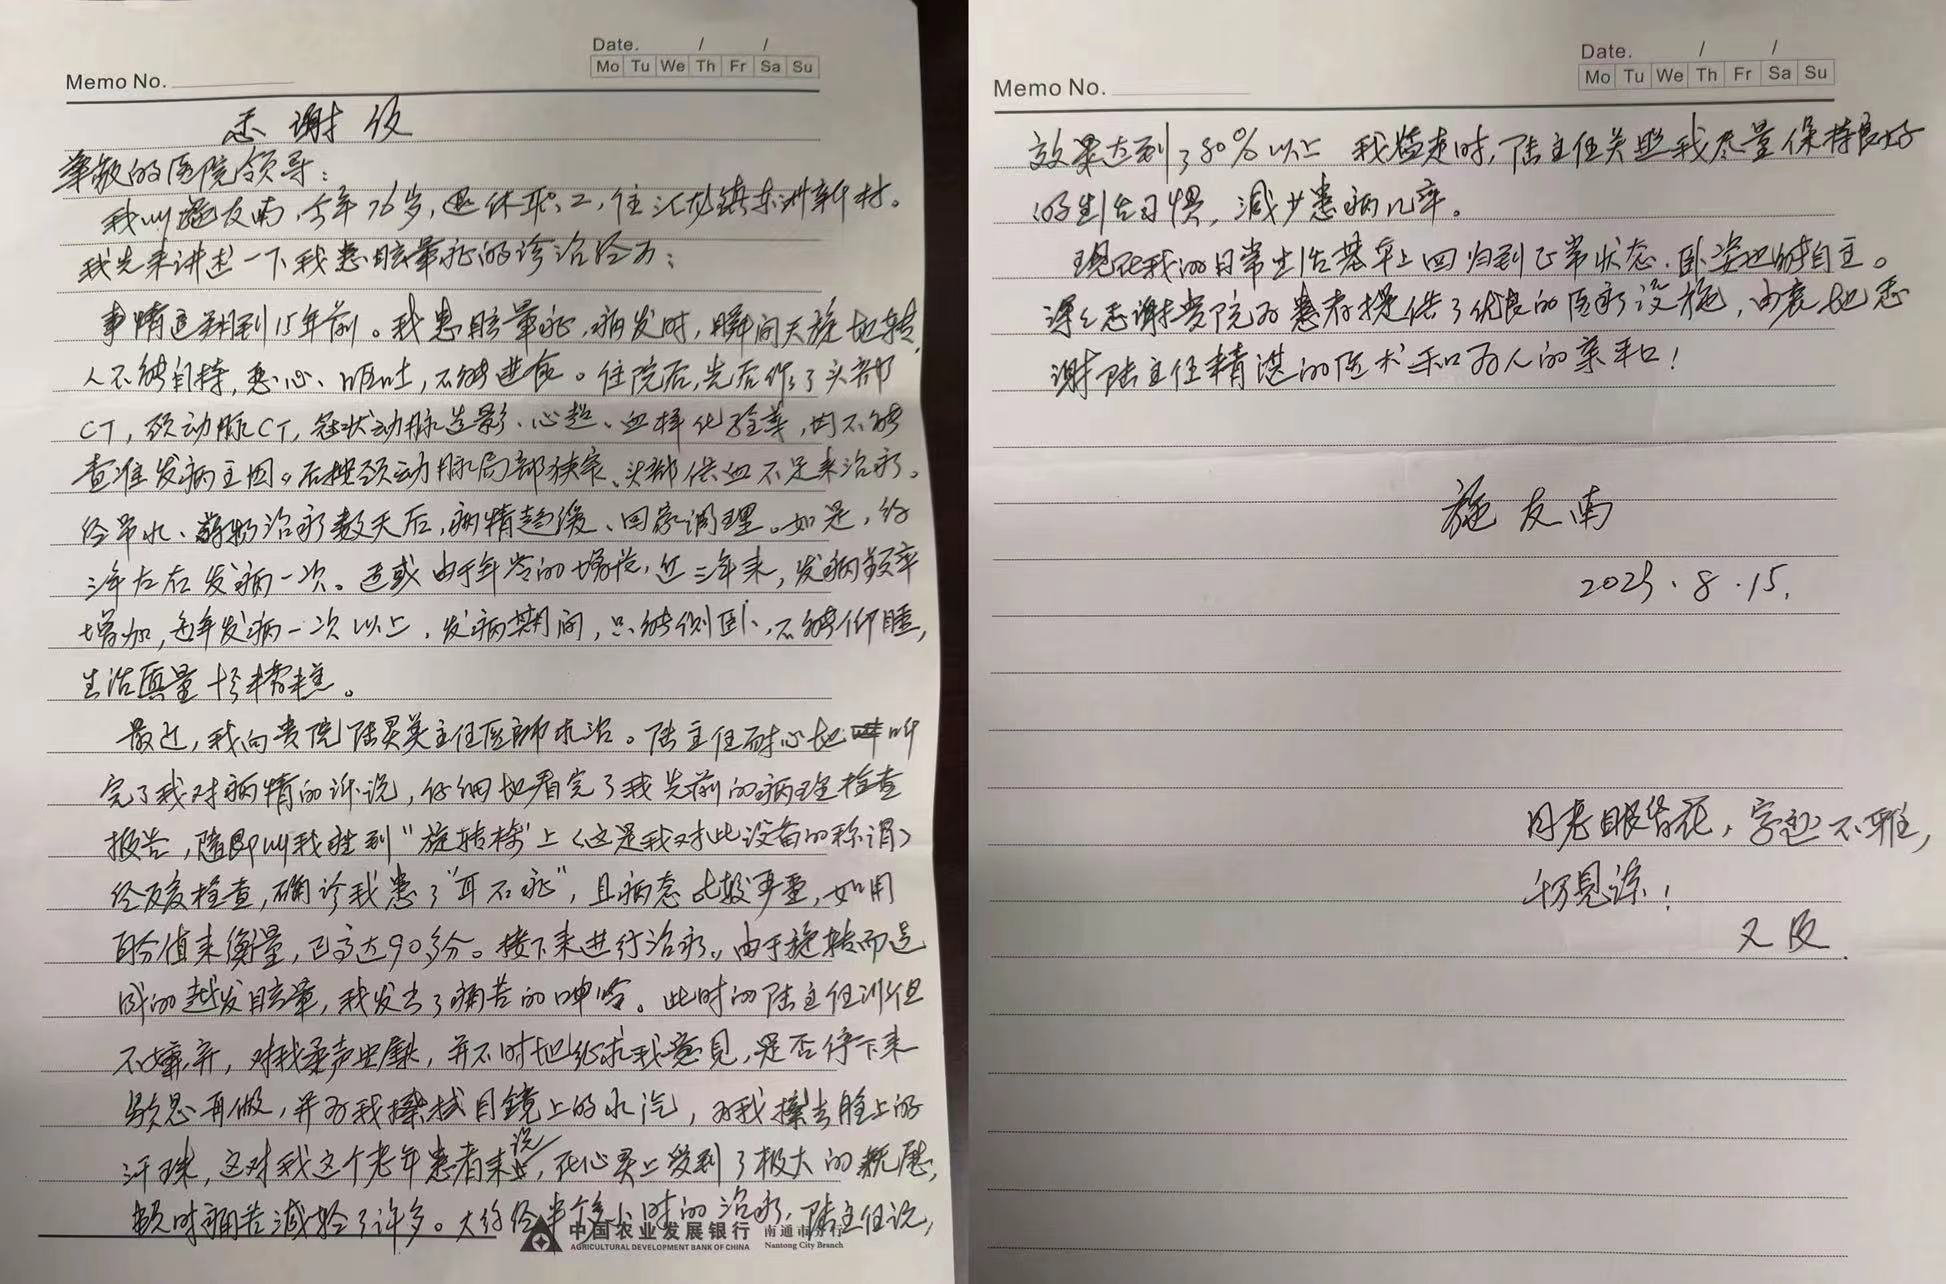 Memo No.
Date. / /
Mo Tu We Th Fr Sa Su
感谢信
尊敬的医院领导：
我叫施友南，今年76岁，退休职工，住汇龙镇东洲新村。
我先来讲述一下我患眩晕症的诊治经历：
事情追溯到15年前。我患眩晕症，病发时，瞬间天旋地转，
人不能自持，恶心、呕吐，不能进食。住院后，先后作了头部
CT，颈动脉CT，冠状动脉造影、心超、血样化验等，均不能
查准发病主因。后按颈动脉局部狭窄、头部供血不足来治疗。
经吊水、药物治疗数天后，病情趋缓、回家调理。如是，约
三年左右发病一次。适或由于年龄的增长，近三年来，发病频率
增加，每年发病一次以上，发病期间，只能侧卧，不能仰睡，
生活质量十分糟糕。
最近，我向贵院陆灵美主任医师求治。陆主任耐心地听
完了我对病情的诉说，仔细地看完了我先前的病理检查
报告，随即叫我驻到“旋转椅”上（这是我对此设备的称谓）
经反复检查，确诊我患了“耳石症”，且病态比较严重，如用
百分值来衡量，已高达90多分。接下来进行治疗。由于旋转而造
成的越发眩晕，我发出了痛苦的呻吟。此时的陆主任非但
不嫌弃，对我柔声安慰，并不时地征求我意见，是否停下来
歇息再做，并为我擦拭目镜上的水汽，为我擦去脸上的
汗珠，这对我这个老年患者来说，在心灵上受到了极大的抚慰，
顿时痛苦减轻了许多。大约经半个多小时的治疗，陆主任说，
中国农业发展银行 南通市分行
AGRICULTURAL DEVELOPMENT BANK OF CHINA Nantong City Branch
Memo No.
Date. / /
Mo Tu We Th Fr Sa Su
效果达到了80%以上 我临走时，陆主任关照我尽量保持良好
的生活习惯，减少患病几率。
现在我的日常生活基本上回归到正常状态，卧姿也能自主。
深深感谢贵院为患者提供了优良的医疗设施，由衷地感
谢陆主任精湛的医术和为人的亲和！
施友南
2025.8.15.
因老眼昏花，字迹不雅，
初见谅！
又及.